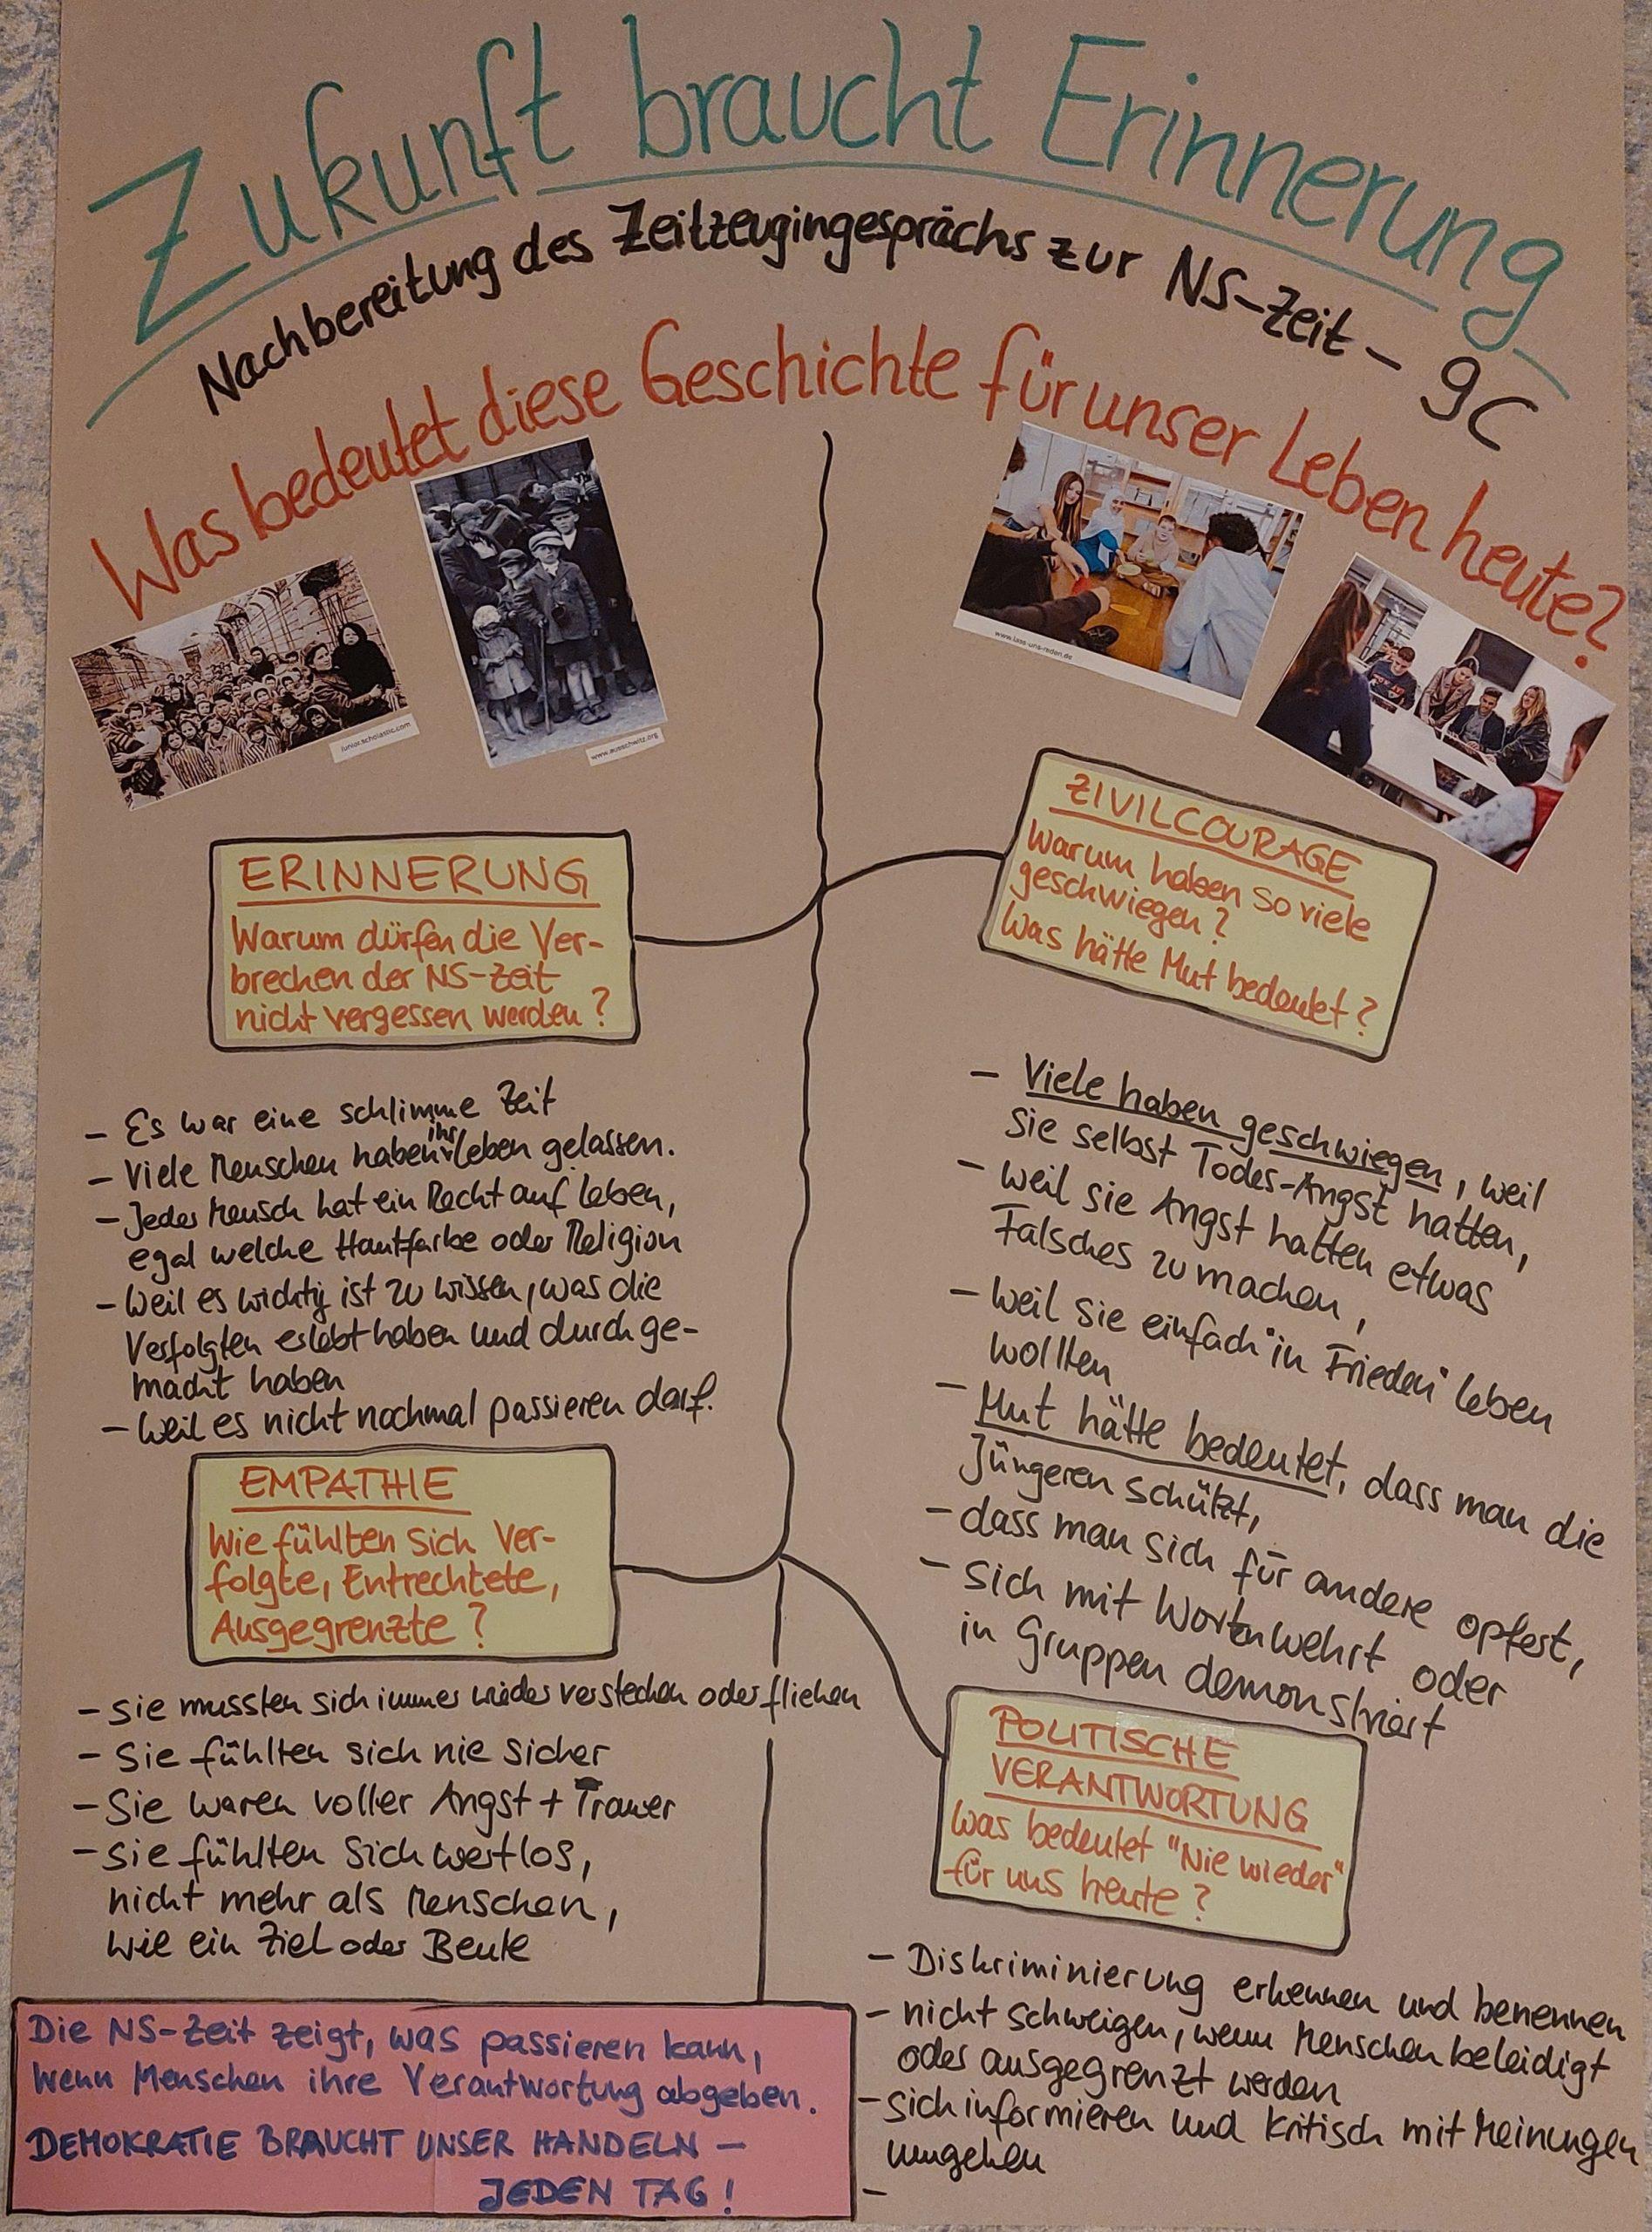 Zukunft braucht Erinnerung
Nachbereitung des Zeitzeugingesprächs zur NS-Zeit – 9C
Was bedeutet diese Geschichte für unser Leben heute?
junior.scholastic.com
www.auschwitz.org
www.lass-uns-reden.de
ERINNERUNG
Warum dürfen die Ver-
brechen der NS-Zeit
nicht vergessen werden?
- Es war eine schlimme Zeit
- Viele Menschen haben ihr Leben gelassen.
- Jeder Mensch hat ein Recht auf Leben,
egal welche Hautfarbe oder Religion
- Weil es wichtig ist zu wissen, was die
Verfolgten erlebt haben und durchge-
macht haben
- Weil es nicht nochmal passieren darf.
EMPATHIE
Wie fühlten sich Ver-
folgte, Entrechtete,
Ausgegrenzte?
- Sie mussten sich immer wieder verstecken oder fliehen
- Sie fühlten sich nie sicher
- Sie waren voller Angst + Trauer
- Sie fühlten sich wertlos,
nicht mehr als Menschen,
wie ein Ziel oder Beute
Die NS-Zeit zeigt, was passieren kann,
wenn Menschen ihre Verantwortung abgeben.
DEMOKRATIE BRAUCHT UNSER HANDELN –
JEDEN TAG!
ZIVILCOURAGE
Warum haben so viele
geschwiegen?
Was hätte Mut bedeutet?
- Viele haben geschwiegen, weil
sie selbst Todes-Angst hatten,
- weil sie Angst hatten etwas
Falsches zu machen,
- weil sie einfach "in Frieden" leben
wollten
- Mut hätte bedeutet, dass man die
Jüngeren schützt,
- dass man sich für andere opfert,
- sich mit Worten wehrt oder
in Gruppen demonstriert
POLITISCHE
VERANTWORTUNG
Was bedeutet "Nie wieder"
für uns heute?
- Diskriminierung erkennen und benennen
- nicht schweigen, wenn Menschen beleidigt
oder ausgegrenzt werden
- sich informieren und kritisch mit Meinungen
umgehen
-